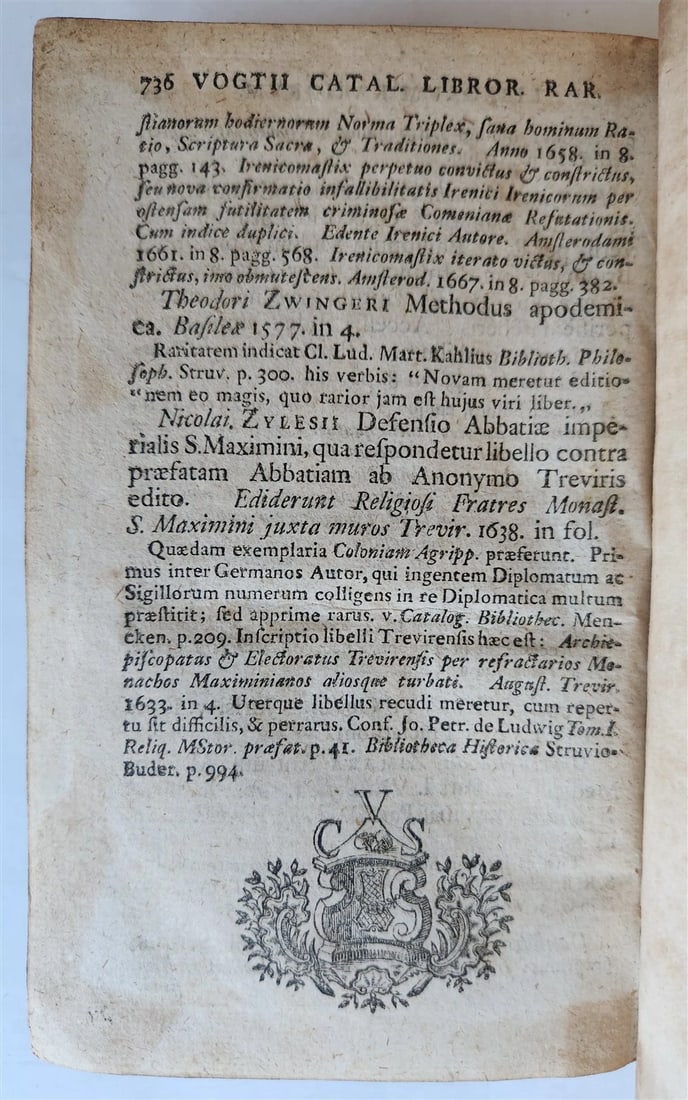 736 VOGTII CATAL. LIBROR. RAR.
ſtianorum hodiernorum Norma Triplex, ſana hominum Ra-
tio, Scriptura Sacra, & Traditiones. Anno 1658. in 8.
pagg. 143. Irenicomaſtix perpetuo convictus & conſtrictus,
ſeu nova confirmatio infallibilitatis Irenici Irenicorum per
oſtenſam futilitatem criminoſæ Comenianæ Refutationis.
Cum indice duplici. Edente Irenici Autore. Amſterodami
1661. in 8. pagg. 568. Irenicomaſtix iterato victus, & con-
ſtrictus, imo obmuteſcens. Amſterod. 1667. in 8. pagg. 382.
Theodori ZWINGERI Methodus apodemi-
ca. Baſileæ 1577. in 4.
Raritatem indicat Cl. Lud. Mart. Kahlius Biblioth. Philo-
ſoph. Struv. p. 300. his verbis: “Novam meretur editio-
“nem eo magis, quo rarior jam eſt hujus viri liber.„
Nicolai. ZYLESII Defenſio Abbatiæ impe-
rialis S. Maximini, qua reſpondetur libello contra
præfatam Abbatiam ab Anonymo Treviris
edito. Ediderunt Religioſi Fratres Monaſt.
S. Maximini juxta muros Trevir. 1638. in fol.
Quædam exemplaria Coloniam Agripp. præferunt. Pri-
mus inter Germanos Autor, qui ingentem Diplomatum ac
Sigillorum numerum colligens in re Diplomatica multum
præſtitit; ſed apprime rarus. v. Catalog. Bibliothec. Men-
cken. p. 209. Inſcriptio libelli Trevirenſis hæc eſt: Archie-
piſcopatus & Electoratus Trevirenſis per refractarios Mo-
nachos Maximinianos aliosque turbati. Auguſt. Trevir.
1633. in 4. Uterque libellus recudi meretur, cum reper-
tu ſit difficilis, & perrarus. Conf. Jo. Petr. de Ludwig Tom. I.
Reliq. MStor. præfat. p. 41. Bibliotheca Hiſtorica Struvio-
Buder. p. 994.
V
C S